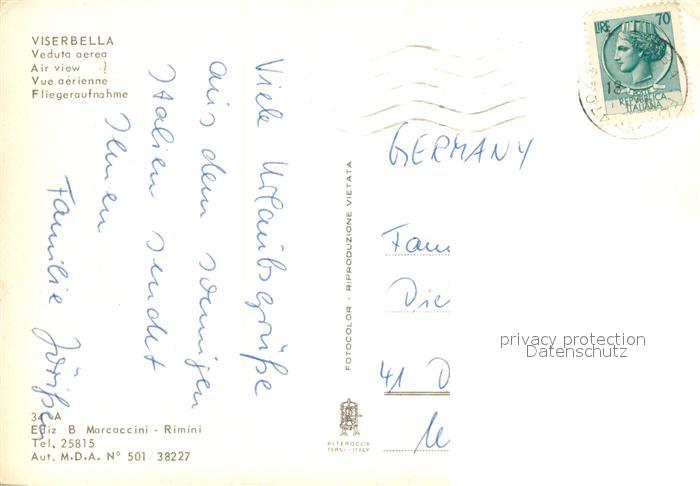 VISERBELLA
Veduta aerea
Air view
Vue aérienne
Fliegeraufnahme
Viele Urlaubsgrüße
aus dem sonnigen
Italien sendet
Ihnen
Familie
34 A
Ediz. B. Marcaccini - Rimini
Tel. 25815
Aut. M.D.A. N° 501/38227
FOTOCOLOR - RIPRODUZIONE VIETATA
ALTEROCCA
TERNI - ITALY
LIRE 70
REPVBBLICA
ITALIANA
18
GERMANY
Fam
Die
41 D
privacy protection
Datenschutz